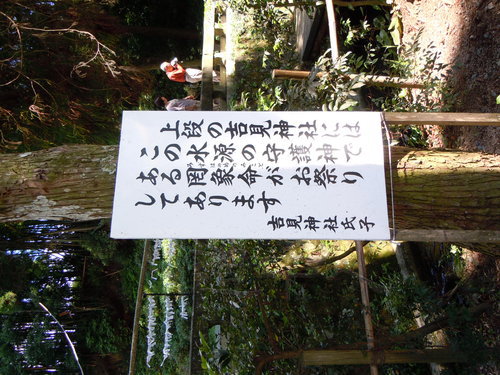 上段の吉見神社には
この水源の守護神で
ある罔象命がお祭り
してあります
吉見神社氏子